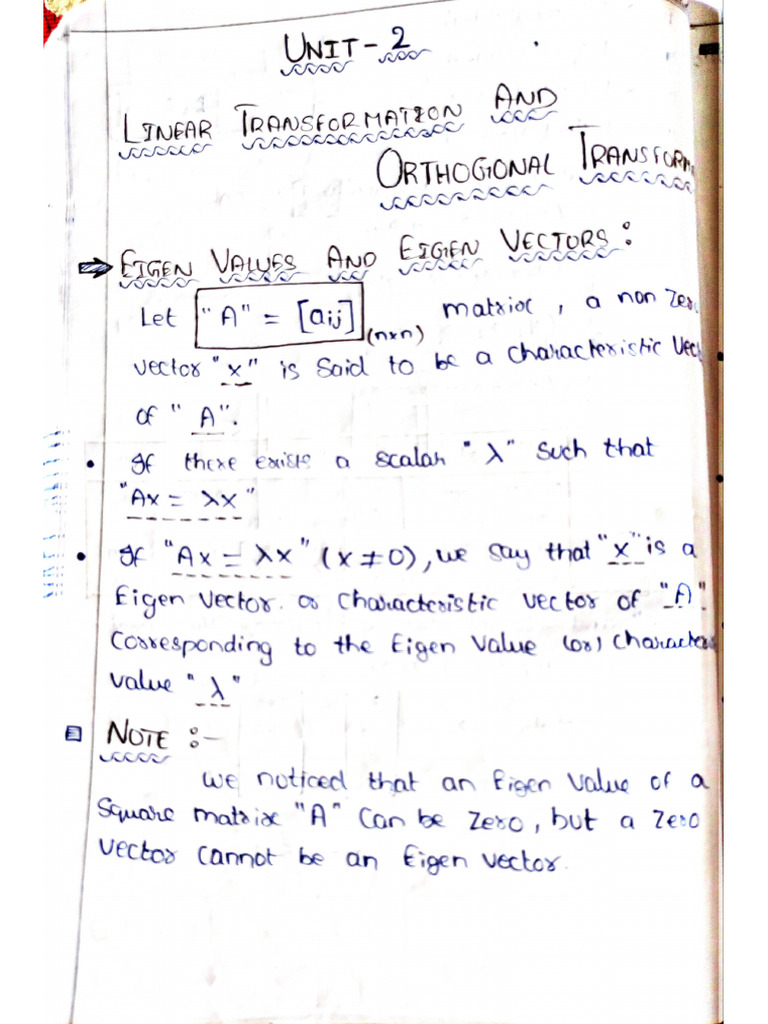 UNIT - 2
LINEAR TRANSFORMATION AND
ORTHOGIONAL TRANSFORM
EIGEN VALUES AND EIGEN VECTORS :
Let "A" = [aij] (n×n) matrix , a non Zero
vector "x" is said to be a characteristic Vec
of "A".
• If there exists a scalar "λ" such that
"Ax = λx"
• If "Ax = λx" (x ≠ 0), we say that "x" is a
Eigen vector or characteristic vector of "A"
Corresponding to the Eigen Value (or) characters
value "λ"
NOTE :-
we noticed that an Eigen Value of a
Square matrix "A" can be zero, but a zero
vector cannot be an Eigen vector.